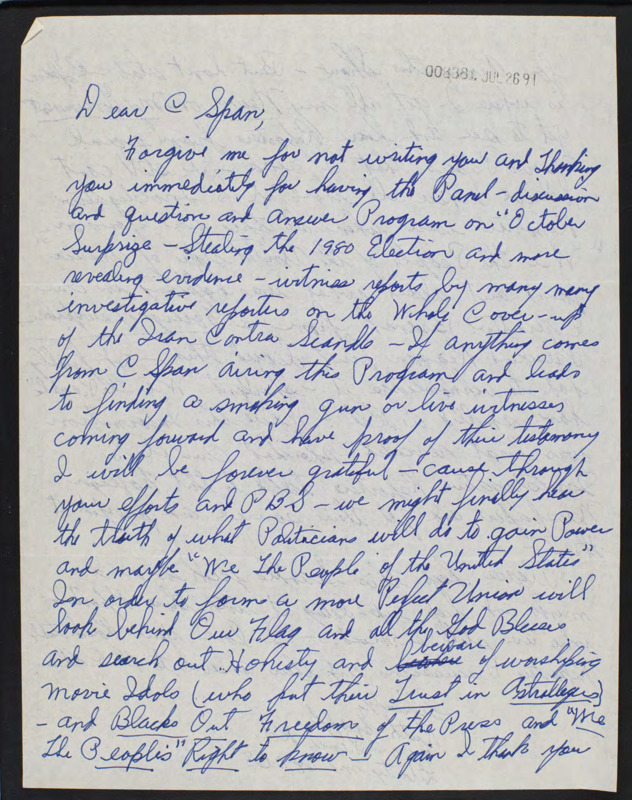 008381 JUL 26 91
Dear C Span,
Forgive me for not writing you and Thanking
you immediatly for having the Panel-discussion
and question and answer Program on "October
Surprize - Stealing the 1980 Election and more
revealing evidence - witness reports by many many
investigative reporters on the Whole Cover-up
of the Iran Contra Scandle - If anything comes
from C Span airing this Program and leads
to finding a smoking gun or live witnesses
coming forward and have proof of their testemony
I will be forever grateful - cause through
your efforts and PBS - we might finally hear
the truth of what Politicians will do to gain Power
and maybe "We The People of the United States"
In order to form a more Perfect Union will
look behind Our Flag and all the God Blesses
and search out Honesty and beware of worshiping
Movie Idols (who put their Trust in Astrollegers)
- and Blacks Out Freedom of the Press and "We
The Peoples" Right to know - Again I thank you